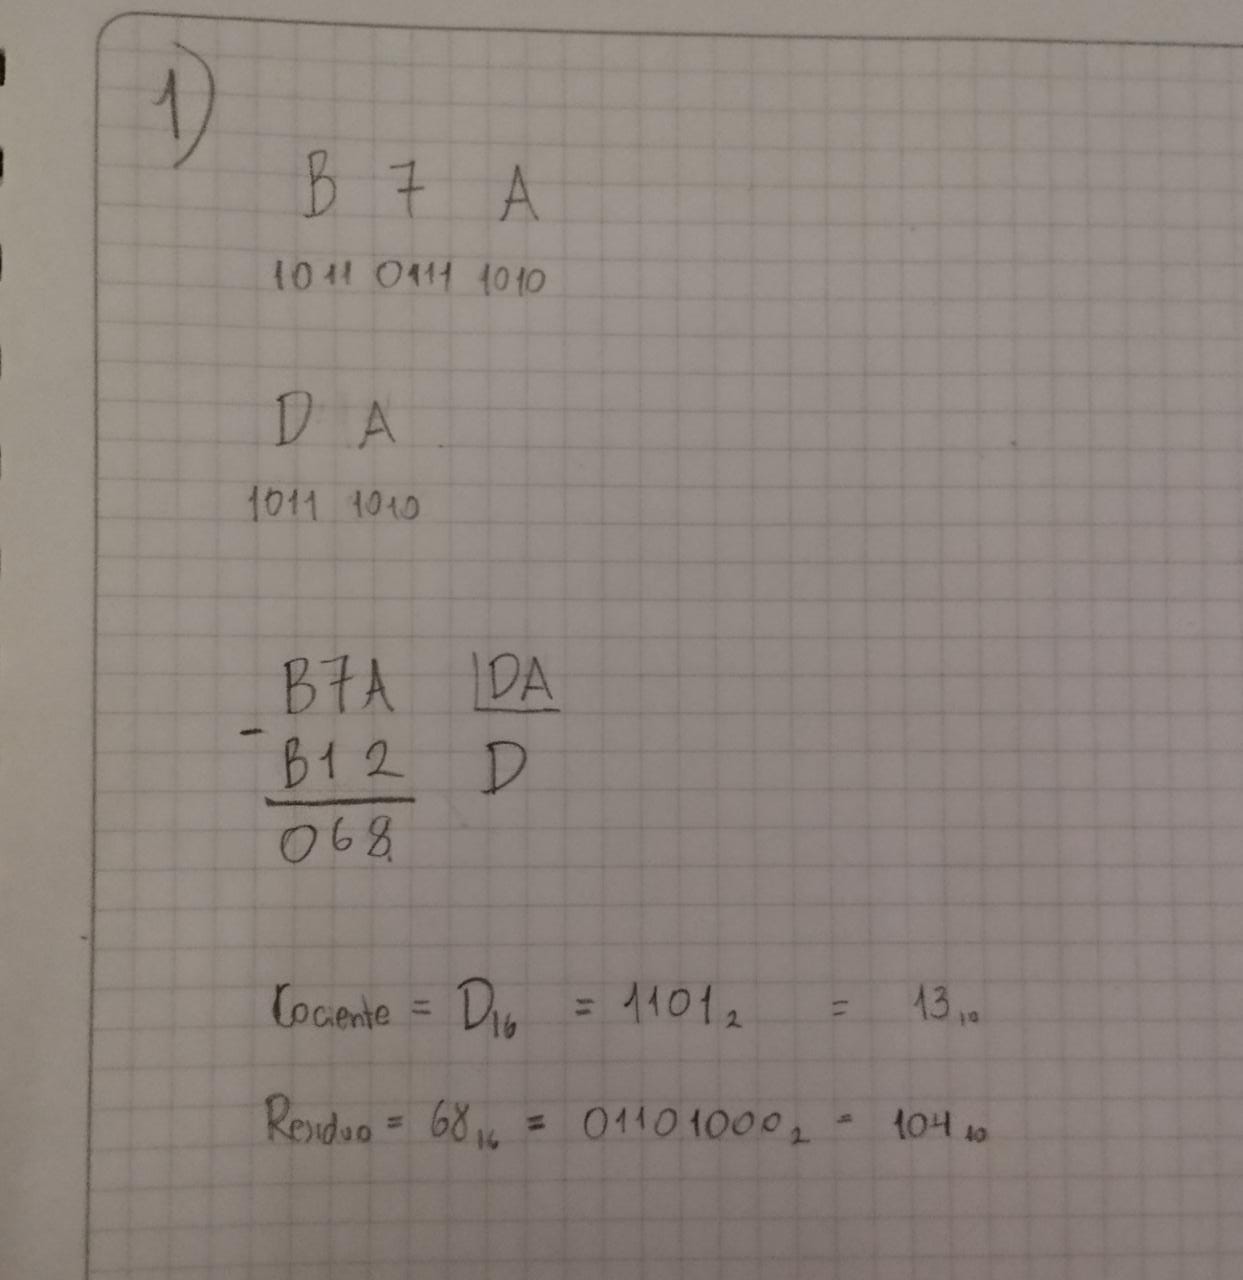 1)
B 7 A
1011 0111 1010
D A
1011 1010
B7A |DA
- B12 D
068
Cociente = D₁₆ = 1101₂ = 13₁₀
Residuo = 68₁₆ = 01101000₂ = 104₁₀